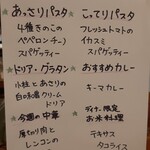 ☆あっさりパスタ
4種きのこの
ペペロンチーノ
スパゲッティー
☆ドリア・グラタン
小柱とあさりの
白の和風クリーム
ドリア
☆今週の中華
厚切り肉と
レンコンの
☆こってりパスタ
フレッシュトマトの
イカスミ
スパゲッティー
おすすめカレー
キーマカレー
ディナー限定
お米料理
テキサス
タコライス